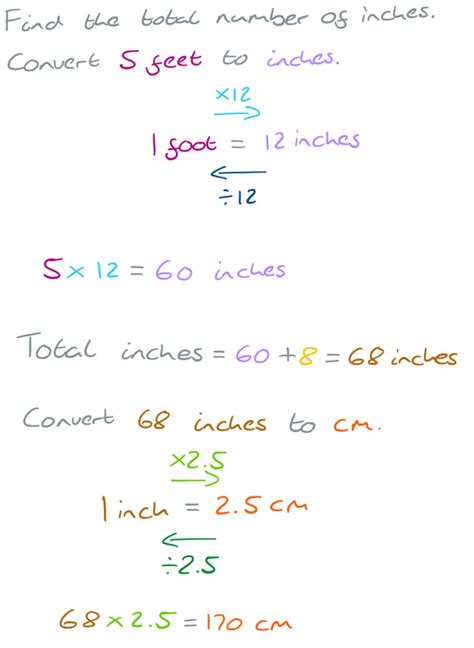 Find the total number of inches.
Convert 5 feet to inches.
×12
1 foot = 12 inches
÷12
5 × 12 = 60 inches
Total inches = 60 + 8 = 68 inches
Convert 68 inches to cm.
×2.5
1 inch = 2.5 cm
÷2.5
68 × 2.5 = 170 cm